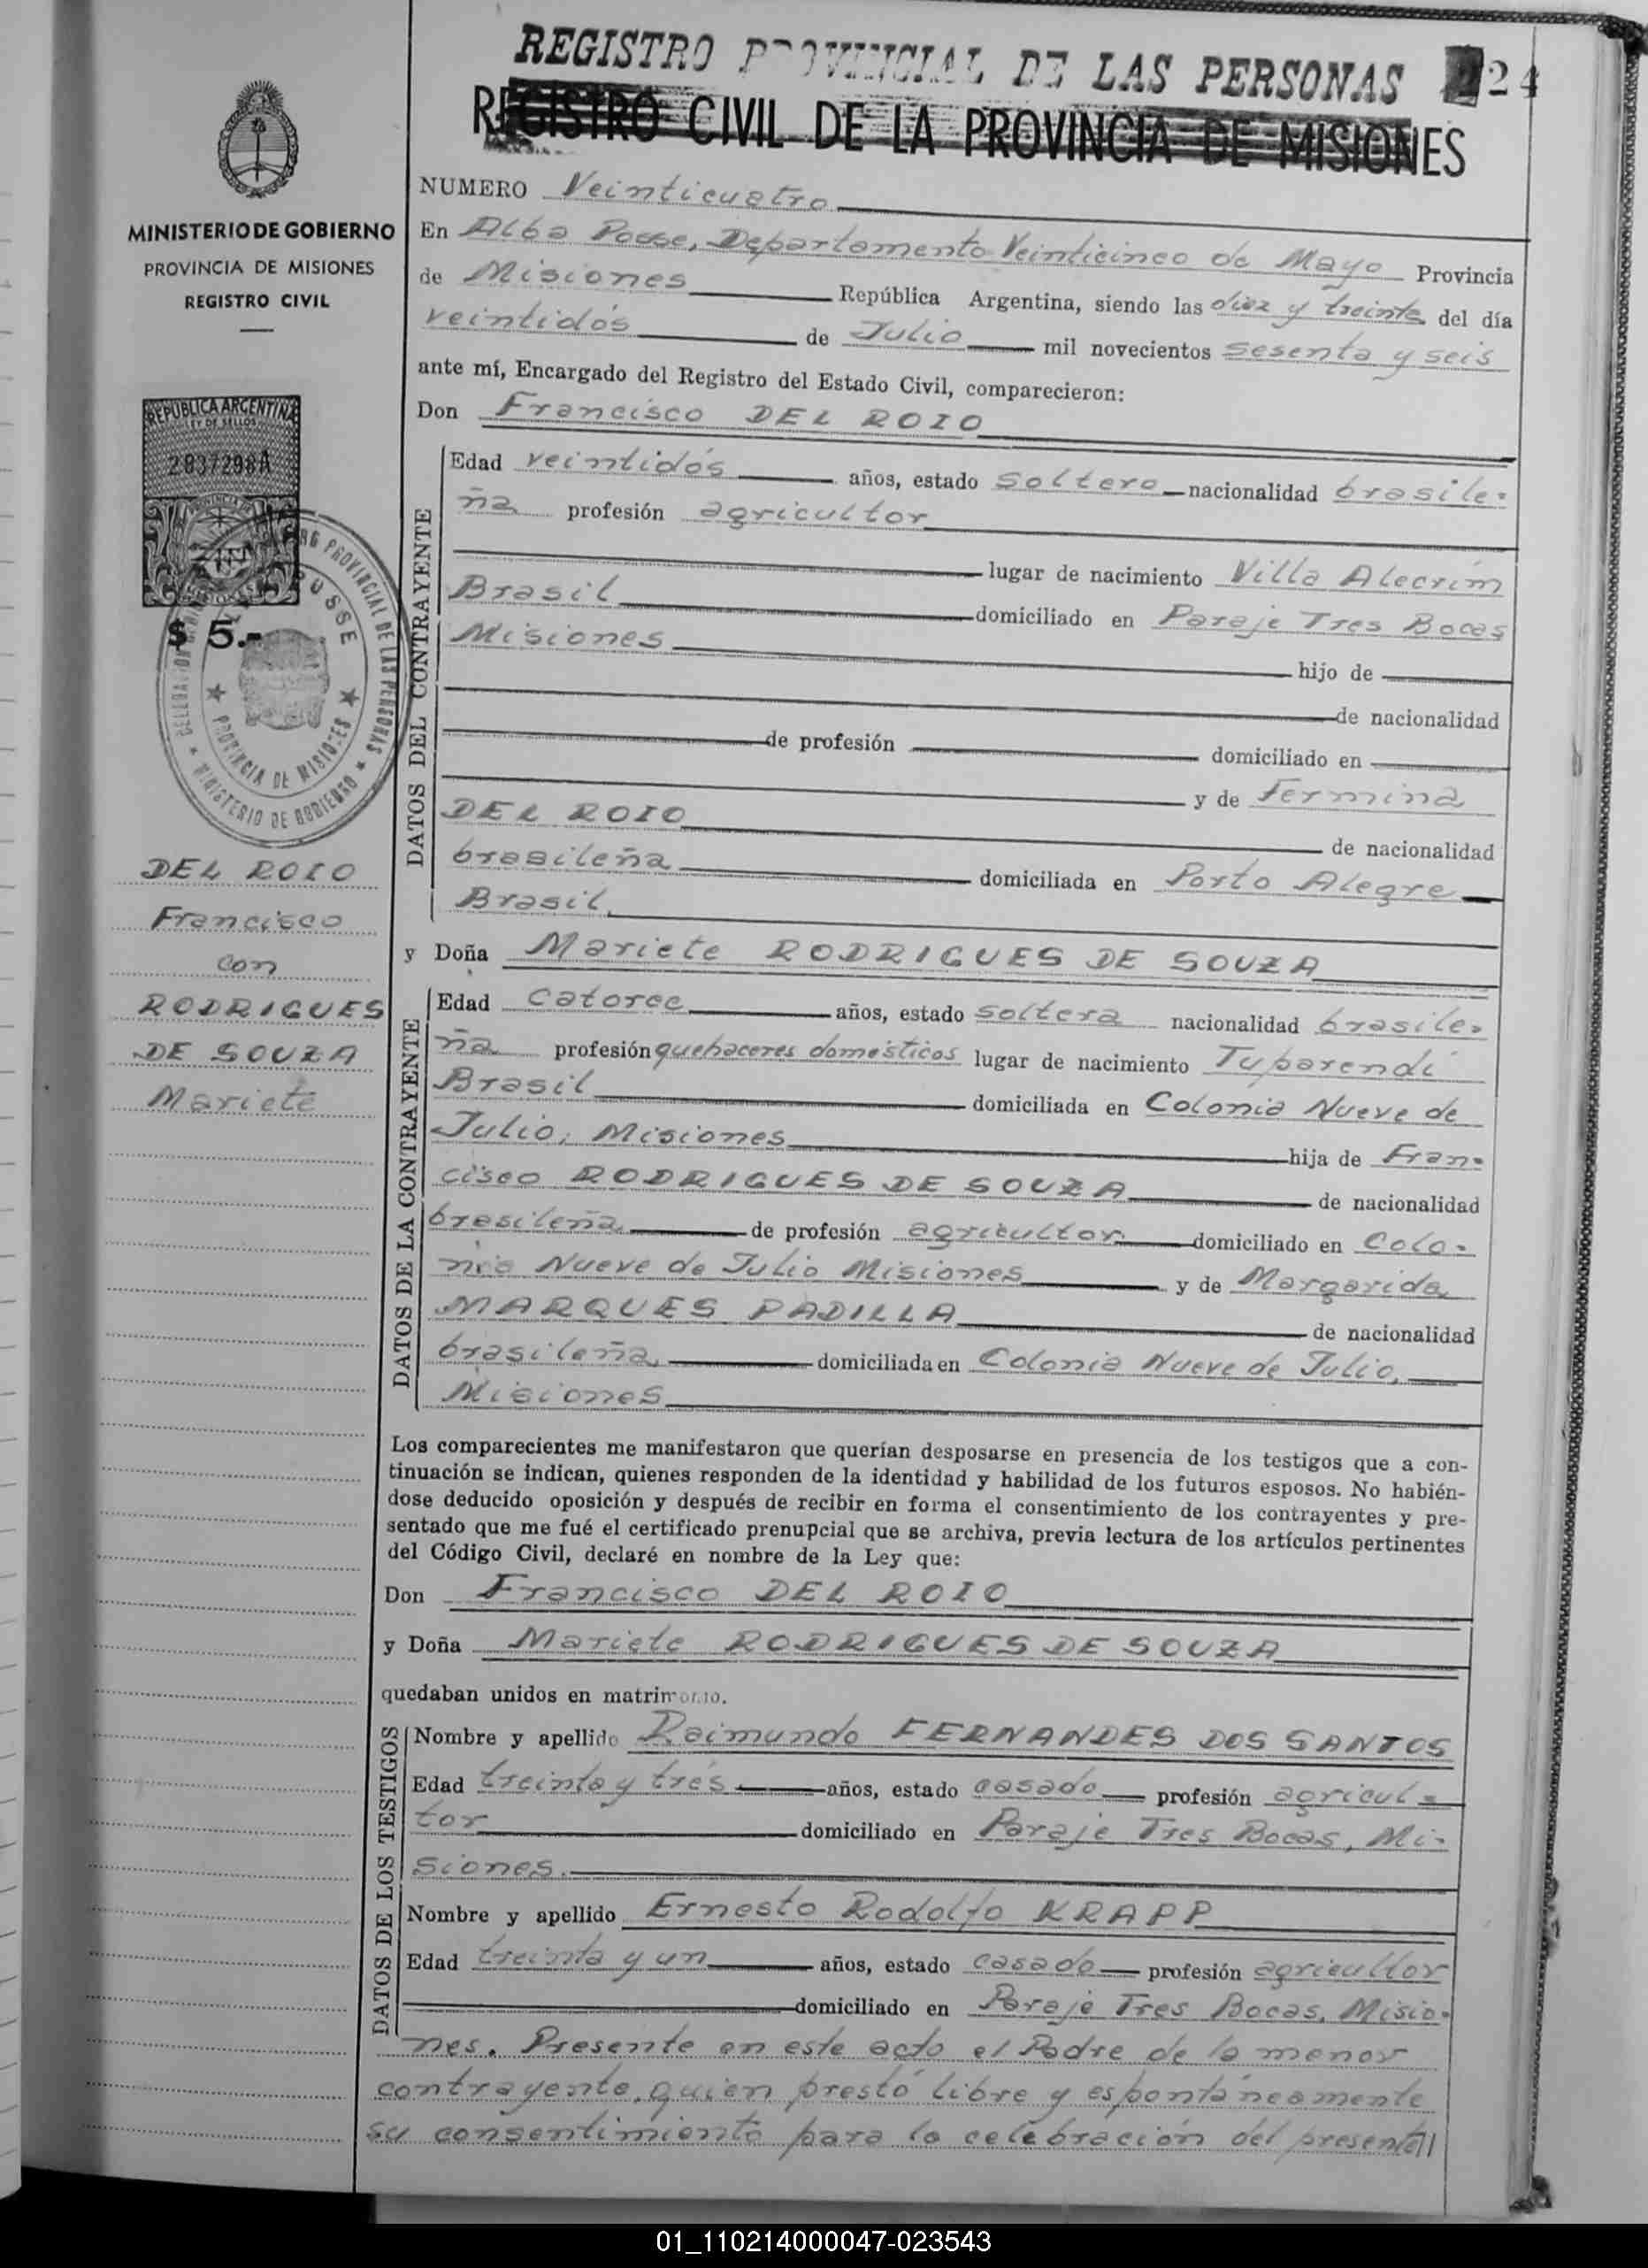 REGISTRO PROVINCIAL DE LAS PERSONAS 24
REGISTRO CIVIL DE LA PROVINCIA DE MISIONES
MINISTERIO DE GOBIERNO
PROVINCIA DE MISIONES
REGISTRO CIVIL
REPUBLICA ARGENTINA
LEY DE SELLOS
2837298A
$ 5.-
PROVINCIA DE MISIONES
MINISTERIO DE GOBIERNO
DEL ROIO
Francisco
con
RODRIGUES
DE SOUZA
Mariete
NUMERO Veinticuatro
En Alba Posse, Departamento Veinticinco de Mayo Provincia
de Misiones República Argentina, siendo las diez y treinta del día
veintidós de Julio mil novecientos sesenta y seis
ante mí, Encargado del Registro del Estado Civil, comparecieron:
Don Francisco DEL ROIO
DATOS DEL CONTRAYENTE
Edad veintidós años, estado soltero nacionalidad brasile-
ña profesión agricultor
lugar de nacimiento Villa Alecrim
Brasil domiciliado en Paraje Tres Bocas
Misiones hijo de
de nacionalidad
de profesión domiciliado en
y de Fermina
DEL ROIO de nacionalidad
brasileña domiciliada en Porto Alegre
Brasil
y Doña Mariete RODRIGUES DE SOUZA
DATOS DE LA CONTRAYENTE
Edad catorce años, estado soltera nacionalidad brasile-
ña profesión quehaceres domésticos lugar de nacimiento Tuparendí
Brasil domiciliada en Colonia Nueve de
Julio, Misiones hija de Fran-
cisco RODRIGUES DE SOUZA de nacionalidad
brasileña de profesión agricultor domiciliado en Colo-
nia Nueve de Julio Misiones y de Margarida
MARQUES PADILLA de nacionalidad
brasileña, domiciliada en Colonia Nueve de Julio,
Misiones
Los comparecientes me manifestaron que querían desposarse en presencia de los testigos que a con-
tinuación se indican, quienes responden de la identidad y habilidad de los futuros esposos. No habién-
dose deducido oposición y después de recibir en forma el consentimiento de los contrayentes y pre-
sentado que me fué el certificado prenupcial que se archiva, previa lectura de los artículos pertinentes
del Código Civil, declaré en nombre de la Ley que:
Don Francisco DEL ROIO
y Doña Mariete RODRIGUES DE SOUZA
quedaban unidos en matrimonio.
DATOS DE LOS TESTIGOS
Nombre y apellido Raimundo FERNANDES DOS SANTOS
Edad treinta y tres años, estado casado profesión agricul-
tor domiciliado en Paraje Tres Bocas, Mi-
siones.
Nombre y apellido Ernesto Rodolfo KRAPP
Edad treinta y un años, estado casado profesión agricultor
domiciliado en Paraje Tres Bocas, Misio-
nes. Presente en este acto el Padre de la menor
contrayente, quien prestó libre y espontáneamente
su consentimiento para la celebración del presente//
01_110214000047-023543